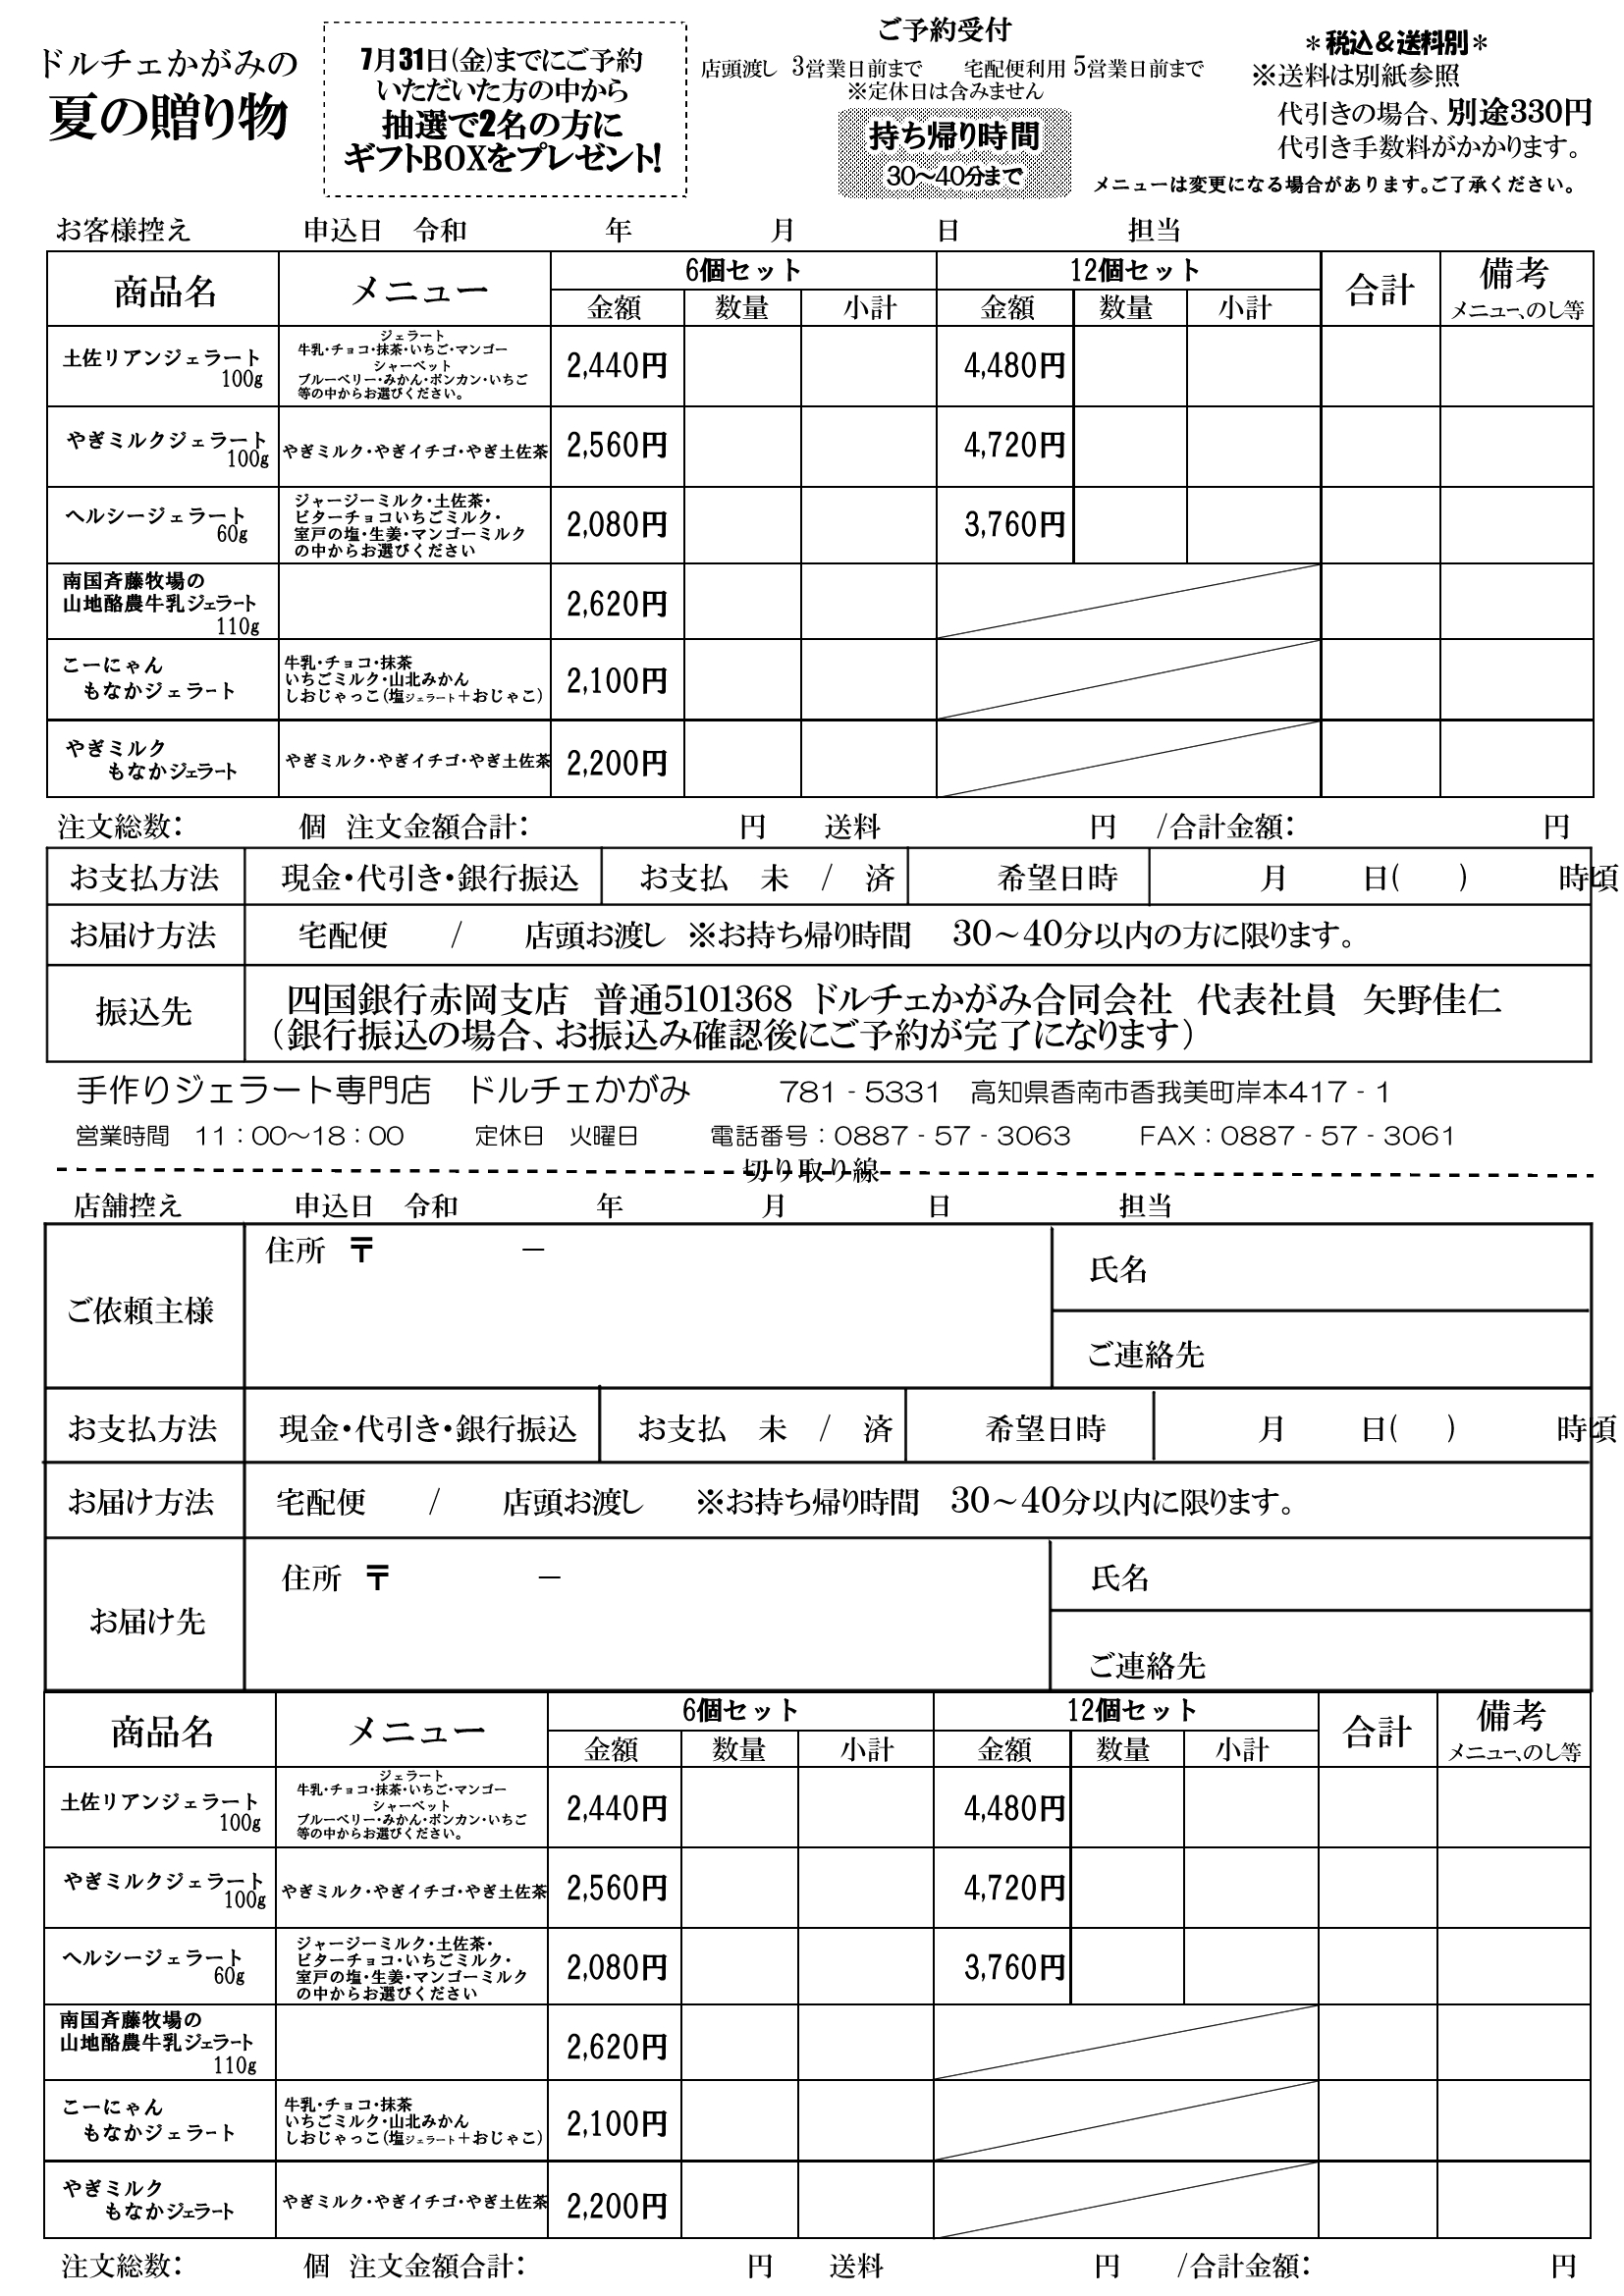 ドルチェかがみの
夏の贈り物
7月31日(金)までにご予約
いただいた方の中から
抽選で2名の方に
ギフトBOXをプレゼント!
ご予約受付
店頭渡し 3営業日前まで 宅配便利用 5営業日前まで
※定休日は含みません
持ち帰り時間
30〜40分まで
＊税込＆送料別＊
※送料は別紙参照
代引きの場合、別途330円
代引き手数料がかかります。
メニューは変更になる場合があります。ご了承ください。
お客様控え 申込日 令和 年 月 日 担当
商品名 メニュー 6個セット 12個セット 合計 備考
金額 数量 小計 金額 数量 小計 メニュー、のし等
土佐リアンジェラート 100g
ジェラート
牛乳・チョコ・抹茶・いちご・マンゴー
シャーベット
ブルーベリー・みかん・ポンカン・いちご
等の中からお選びください。
2,440円 4,480円
やぎミルクジェラート 100g
やぎミルク・やぎイチゴ・やぎ土佐茶
2,560円 4,720円
ヘルシージェラート 60g
ジャージーミルク・土佐茶・
ビターチョコいちごミルク・
室戸の塩・生姜・マンゴーミルク
の中からお選びください
2,080円 3,760円
南国斉藤牧場の
山地酪農牛乳ジェラート
110g
2,620円
こーにゃん
もなかジェラート
牛乳・チョコ・抹茶
いちごミルク・山北みかん
しおじゃっこ(塩ジェラート＋おじゃこ)
2,100円
やぎミルク
もなかジェラート
やぎミルク・やぎイチゴ・やぎ土佐茶
2,200円
注文総数： 個 注文金額合計： 円 送料 円 /合計金額： 円
お支払方法 現金・代引き・銀行振込 お支払 未 / 済 希望日時 月 日( ) 時頃
お届け方法 宅配便 / 店頭お渡し ※お持ち帰り時間 30〜40分以内の方に限ります。
振込先
四国銀行赤岡支店 普通5101368 ドルチェかがみ合同会社 代表社員 矢野佳仁
（銀行振込の場合、お振込み確認後にご予約が完了になります）
手作りジェラート専門店 ドルチェかがみ 781 - 5331 高知県香南市香我美町岸本417 - 1
営業時間 11：00〜18：00 定休日 火曜日 電話番号：0887 - 57 - 3063 FAX：0887 - 57 - 3061
切り取り線
店舗控え 申込日 令和 年 月 日 担当
ご依頼主様 住所 〒 － 氏名
ご連絡先
お支払方法 現金・代引き・銀行振込 お支払 未 / 済 希望日時 月 日( ) 時頃
お届け方法 宅配便 / 店頭お渡し ※お持ち帰り時間 30〜40分以内に限ります。
お届け先 住所 〒 － 氏名
ご連絡先
商品名 メニュー 6個セット 12個セット 合計 備考
金額 数量 小計 金額 数量 小計 メニュー、のし等
土佐リアンジェラート 100g
ジェラート
牛乳・チョコ・抹茶・いちご・マンゴー
シャーベット
ブルーベリー・みかん・ポンカン・いちご
等の中からお選びください。
2,440円 4,480円
やぎミルクジェラート 100g
やぎミルク・やぎイチゴ・やぎ土佐茶
2,560円 4,720円
ヘルシージェラート 60g
ジャージーミルク・土佐茶・
ビターチョコ・いちごミルク・
室戸の塩・生姜・マンゴーミルク
の中からお選びください
2,080円 3,760円
南国斉藤牧場の
山地酪農牛乳ジェラート
110g
2,620円
こーにゃん
もなかジェラート
牛乳・チョコ・抹茶
いちごミルク・山北みかん
しおじゃっこ(塩ジェラート＋おじゃこ)
2,100円
やぎミルク
もなかジェラート
やぎミルク・やぎイチゴ・やぎ土佐茶
2,200円
注文総数： 個 注文金額合計： 円 送料 円 /合計金額： 円